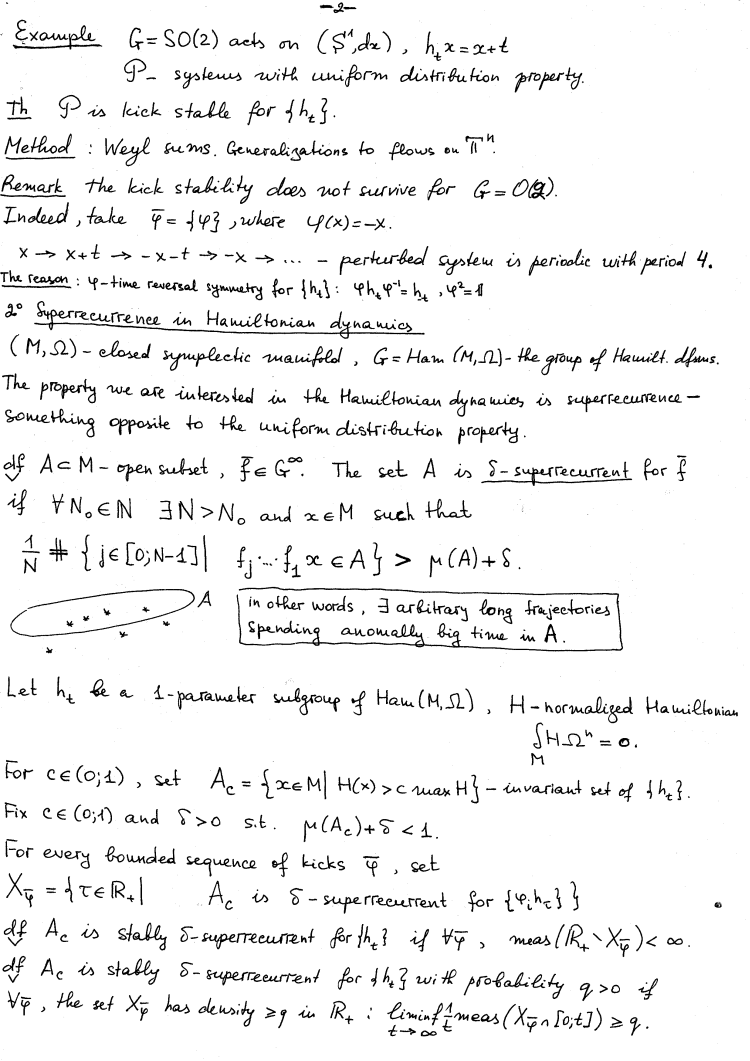 -2-
Example G=SO(2) acts on (S¹,dx), h_t x=x+t
𝒫- systems with uniform distribution property.
Th 𝒫 is kick stable for {h_t}.
Method : Weyl sums. Generalizations to flows on 𝕋ⁿ.
Remark the kick stability does not survive for G=O(2).
Indeed, take φ̄ = {φ}, where φ(x)=-x.
x → x+t → -x-t → -x → ... - perturbed system is periodic with period 4.
The reason : φ-time reversal symmetry for {h_t}: φh_tφ⁻¹=h_t, φ²=𝟙
2° Superrecurrence in Hamiltonian dynamics
(M,Ω)-closed symplectic manifold, G=Ham(M,Ω)-the group of Hamilt. dfms.
The property we are interested in the Hamiltonian dynamics is superrecurence-
something opposite to the uniform distribution property.
df A⊂M-open subset, f̄∈G^∞. The set A is δ-superrecurrent for f̄
if ∀N₀∈ℕ ∃N>N₀ and x∈M such that
1/N # {j∈[0;N-1]| f_j⋯f₁x∈A} > μ(A)+δ.
A
in other words, ∃ arbitrary long trajectories
spending anomally big time in A.
Let h_t be a 1-parameter subgroup of Ham(M,Ω), H-normalized Hamiltonian
∫_M HΩⁿ=0.
For c∈(0;1), set A_c={x∈M| H(x)>c max H}-invariant set of {h_t}.
Fix c∈(0;1) and δ>0 s.t. μ(A_c)+δ<1.
For every bounded sequence of kicks φ̄, set
X_φ̄={τ∈ℝ₊| A_c is δ-superrecurrent for {φ_i h_τ}}
df A_c is stably δ-superrecurrent for {h_t} if ∀φ̄, meas(ℝ₊∖X_φ̄)<∞.
df A_c is stably δ-superrecurrent for {h_t} with probability q>0 if
∀φ̄, the set X_φ̄ has density ≥q in ℝ₊: liminf_{t→∞} 1/t meas(X_φ̄∩[0;t])≥q.